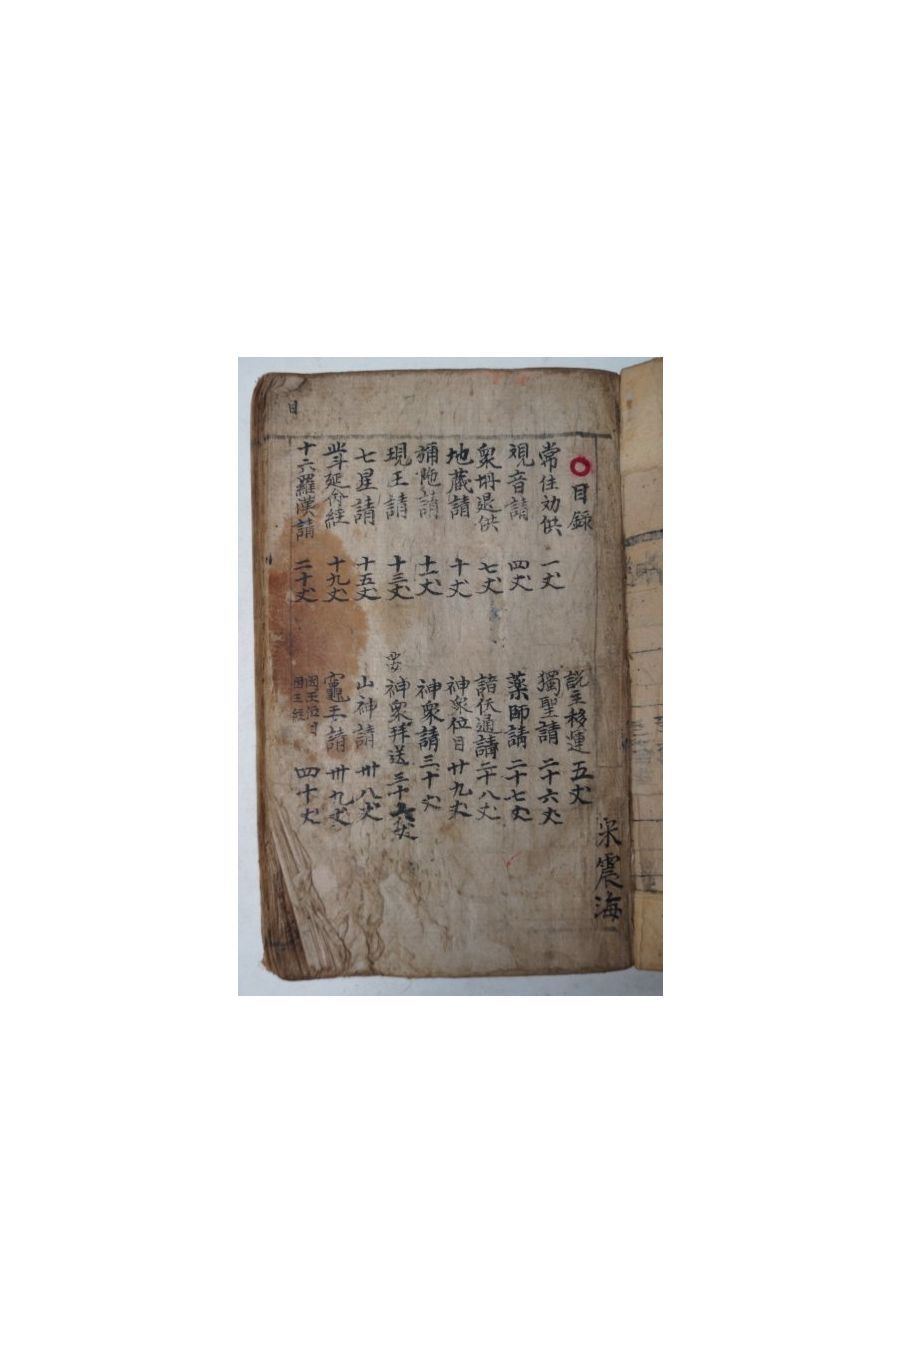 目録
常住効供 一丈
視音請 四丈
衆册退供 七丈
地蔵請 十丈
彌陁請 十一丈
現王請 十三丈
七星請 十五丈
北斗延命經 十九丈
十六羅漢請 二十丈
説主移運 五丈
獨聖請 二十六丈
薬師請 二十七丈
諸佛通請 二十八丈
神衆位目 廿九丈
神衆請 三十丈
神衆拜送 三十六丈
山神請 卅八丈
竈王請 卅九丈
四十丈
震海
目